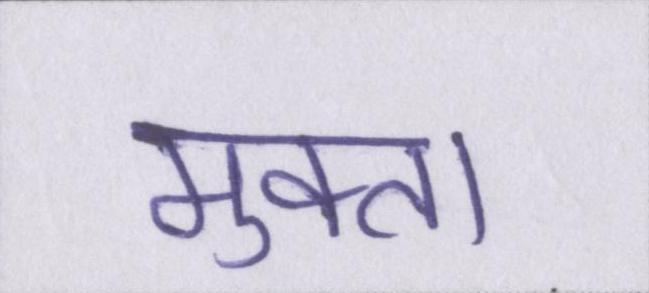 मुक्ता